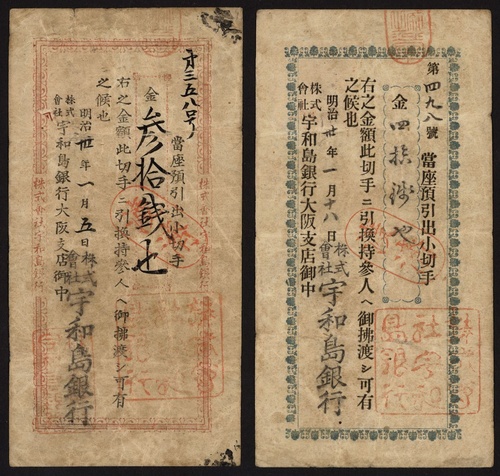 第三五八号
當座預引出小切手
金参拾銭也
右之金額此切手ニ引換持參人ヘ御拂渡シ可有
之候也
明治卅年一月五日
株式會社宇和島銀行
株式會社宇和島銀行大阪支店御中
第四九八號
當座預引出小切手
金四拾銭也
右之金額此切手ニ引換持參人ヘ御拂渡シ可有
之候也
明治卅年一月十八日
株式會社宇和島銀行
株式會社宇和島銀行大阪支店御中